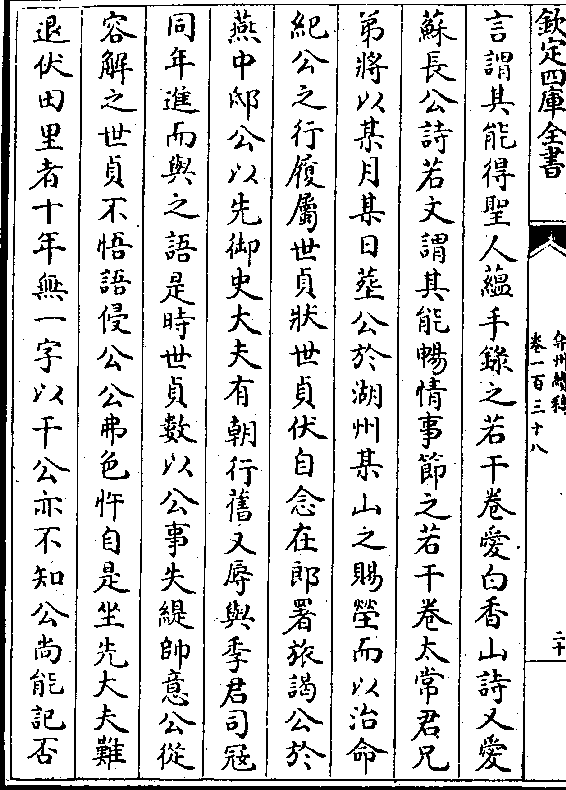 欽定四庫全書
弇州續稿
卷一百三十八
二十
言謂其能得聖人蘊手錄之若干卷愛白香山詩又愛
蘇長公詩若文謂其能暢情事節之若干卷太常君兄
弟將以某月某日塟公於湖州某山之賜塋而以治命
紀公之行履屬世貞狀世貞伏自念在郎署旅謁公於
燕中邸公以先御史大夫有朝行舊又辱與季君司冦
同年進而與之語是時世貞數以公事失緹帥意公從
容解之世貞不悟語侵公公弗色忤自是坐先大夫難
退伏田里者十年無一字以干公亦不知公尚能記否